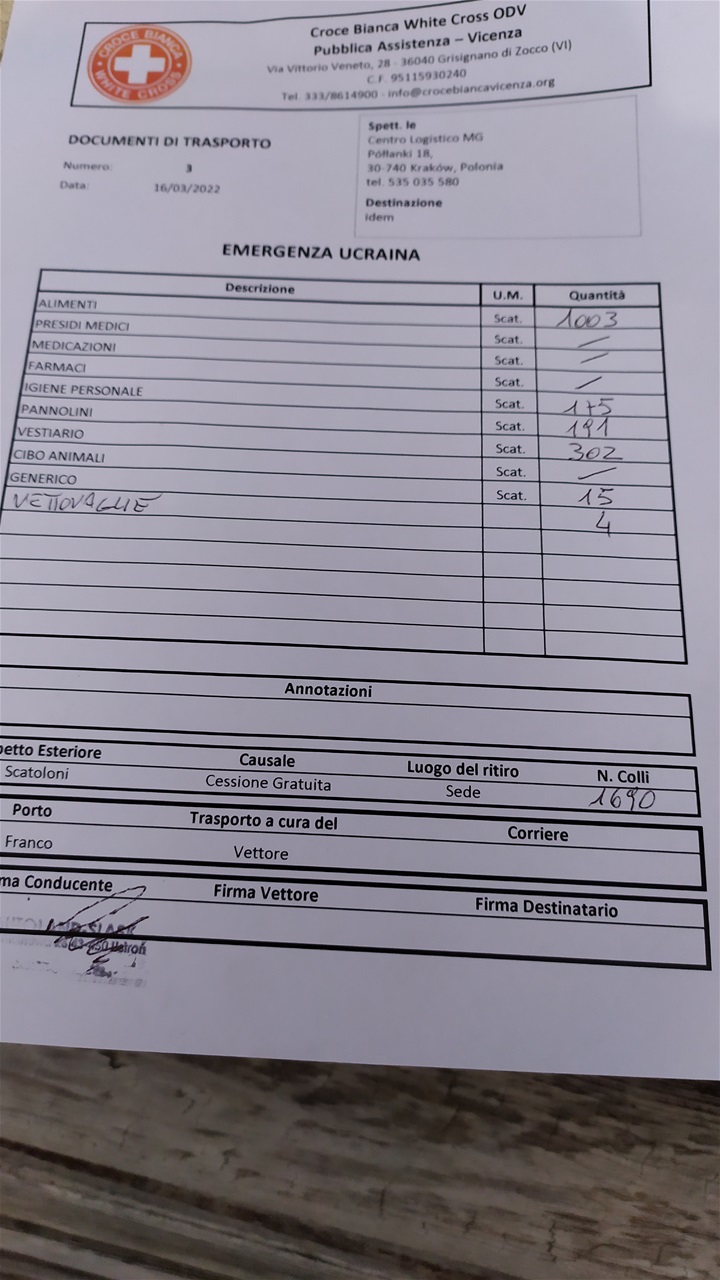 CROCE BIANCA
WHITE CROSS
Croce Bianca White Cross ODV
Pubblica Assistenza – Vicenza
Via Vittorio Veneto, 28 - 36040 Grisignano di Zocco (VI)
C.F. 95115930240
Tel. 333/8614900 - info@crocebiancavicenza.org
DOCUMENTI DI TRASPORTO
Numero: 3
Data: 16/03/2022
Spett. le
Centro Logistico MG
Półłanki 18,
30-740 Kraków, Polonia
tel. 535 035 580
Destinazione
idem
EMERGENZA UCRAINA
Descrizione U.M. Quantità
ALIMENTI Scat. 1003
PRESIDI MEDICI Scat. –
MEDICAZIONI Scat. –
FARMACI Scat. –
IGIENE PERSONALE Scat. 175
PANNOLINI Scat. 191
VESTIARIO Scat. 302
CIBO ANIMALI Scat. –
GENERICO Scat. 15
VETTOVAGLIE 4
Annotazioni
petto Esteriore Causale Luogo del ritiro N. Colli
Scatoloni Cessione Gratuita Sede 1690
Porto Trasporto a cura del Corriere
Franco Vettore
ma Conducente Firma Vettore Firma Destinatario